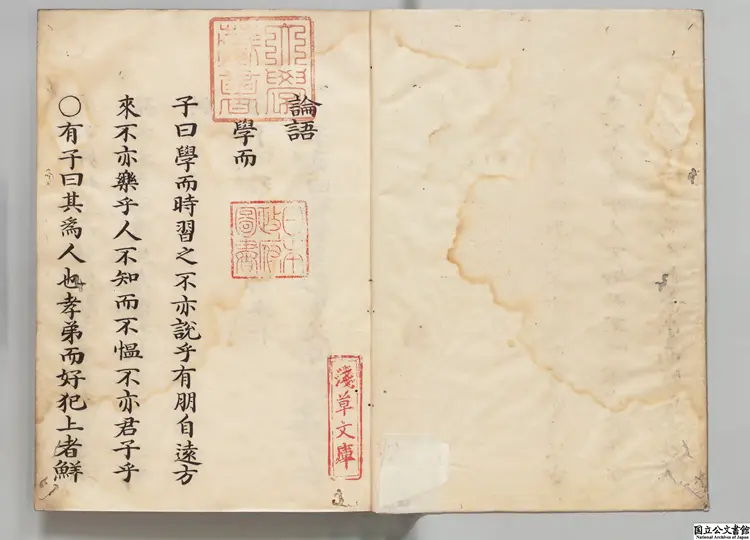 論語
學而
子曰學而時習之不亦説乎有朋自遠方
來不亦樂乎人不知而不愠不亦君子乎
○有子曰其爲人也孝弟而好犯上者鮮
大學藏書
日本政府圖書
淺草文庫
国立公文書館
National Archives of Japan